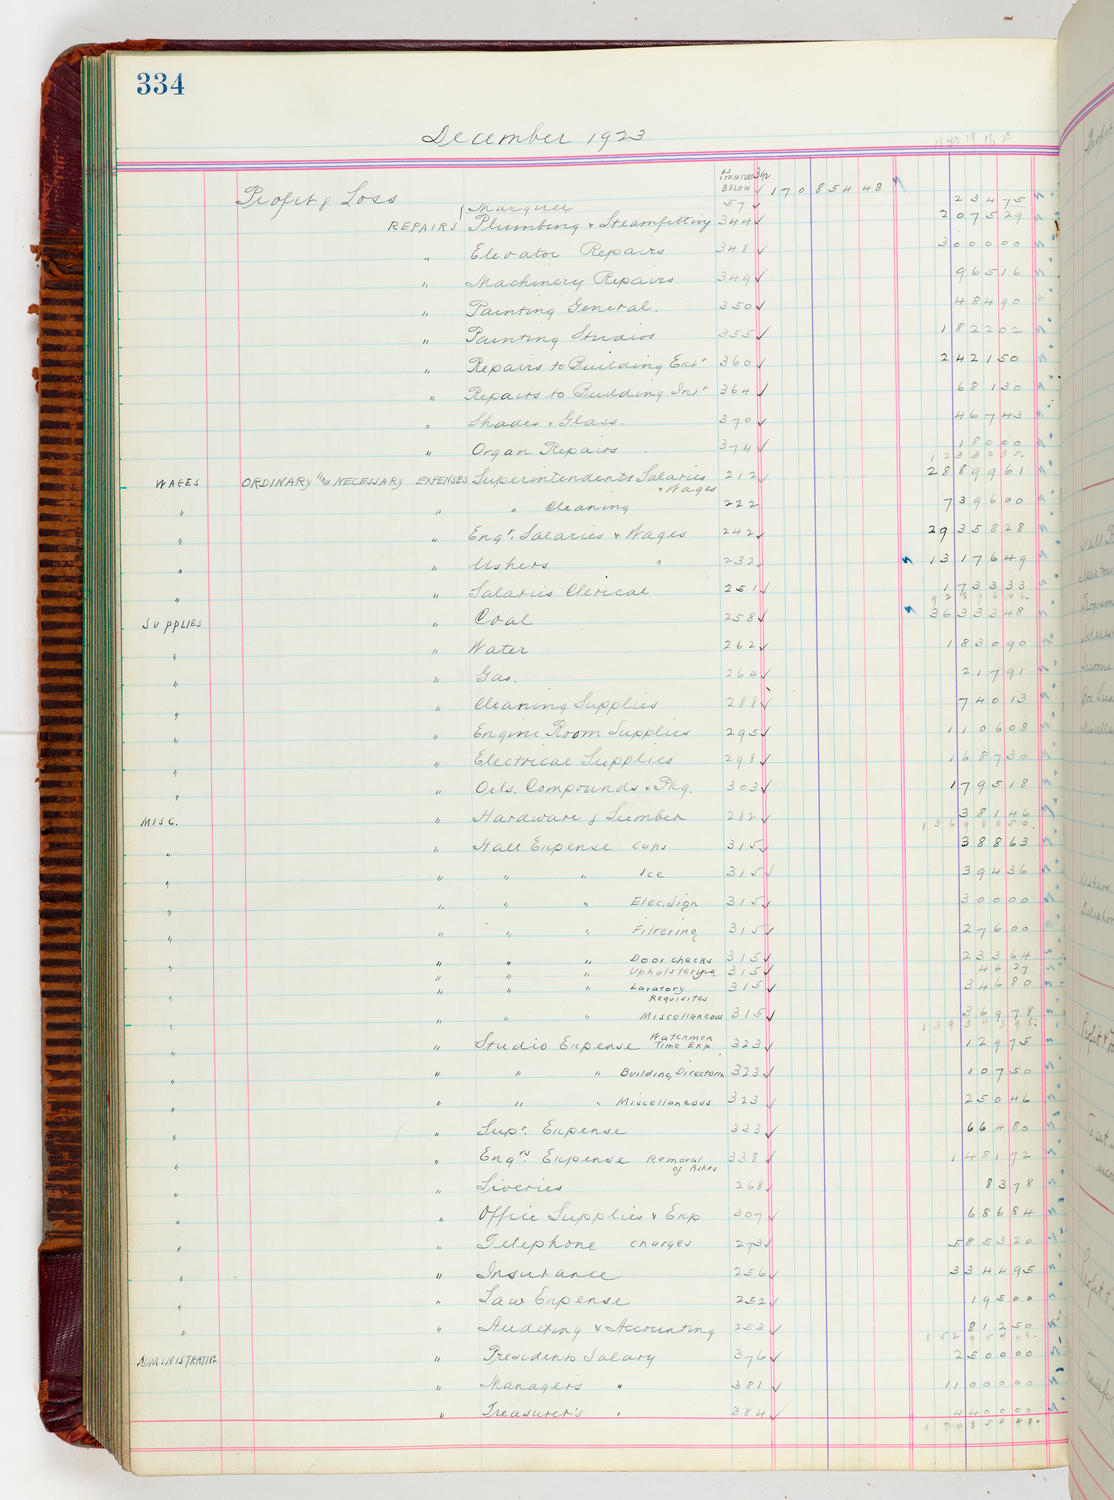 334
December 1923
Profit & Loss AS ITEMIZED BELOW 342 ✓ 170854 48
Marquee 57 ✓ 234 75
REPAIRS Plumbing & Steamfitting 344 ✓ 2075 29
" Elevator Repairs 348 ✓ 3000 00
" Machinery Repairs 349 ✓ 965 16
" Painting General. 350 ✓ 484 90
" Painting Studios 355 ✓ 1822 02
" Repairs to Building Extr 360 ✓ 2421 50
" Repairs to Building Intr 364 ✓ 681 30
" Shades & Glass. 370 ✓ 467 43
" Organ Repairs 374 ✓ 180 00
12332 38.
WAGES ORDINARY and NECESSARY EXPENSES Superintendents Salaries & Wages 212 ✓ 28899 61
" " " Cleaning 222 7396 00
" " Engr. Salaries & Wages 242 ✓ 29358 28
" " Ushers " 232 ✓ 13176 49
" " Salaries Clerical 251 ✓ 1733 33
SUPPLIES " Coal 258 ✓ 36333 48
" " Water 262 ✓ 1830 90
" " Gas. 264 ✓ 217 91
" " Cleaning Supplies 288 ✓ 740 13
" " Engine Room Supplies 295 ✓ 1106 08
" " Electrical Supplies 298 ✓ 1687 30
" " Oils, Compounds & Pkg. 303 ✓ 1795 18
MISC. " Hardware & Lumber 282 ✓ 381 46
136988 50.
" " Hall Expense Cups 315 ✓ 388 63
" " " Ice 315 ✓ 394 36
" " " " Elec. Sign 315 ✓ 300 00
" " " " Filtering 315 ✓ 276 00
" " " " Door checks 315 ✓ 233 64
" " " Upholstering 315 ✓ 46 27
" " " " Lavatory Requisites 315 ✓ 346 80
" " " Miscellaneous 315 ✓ 369 78
139343 98.
" " Studio Expense Watchmen Time Exp. 323 ✓ 129 75
" " " " Building Directories 323 ✓ 107 50
" " " " Miscellaneous 323 ✓ 250 46
" " Supt. Expense 333 ✓ 664 80
" " Engrs. Expense Removal of Ashes 338 ✓ 1481 72
" " Liveries 268 ✓ 83 78
" " Office Supplies & Exp 307 ✓ 686 84
" " Telephone charges 273 ✓ 5853 20
" " Insurance 256 ✓ 3344 95
" " Law Expense 252 ✓ 195 00
" " Auditing & Accounting 253 ✓ 812 50
152954 48.
ADMINISTRATIVE " Presidents Salary 376 ✓ 2500 00
" Managers " 381 ✓ 11000 00
" Treasurer's " 384 ✓ 4400 00
170854 48.